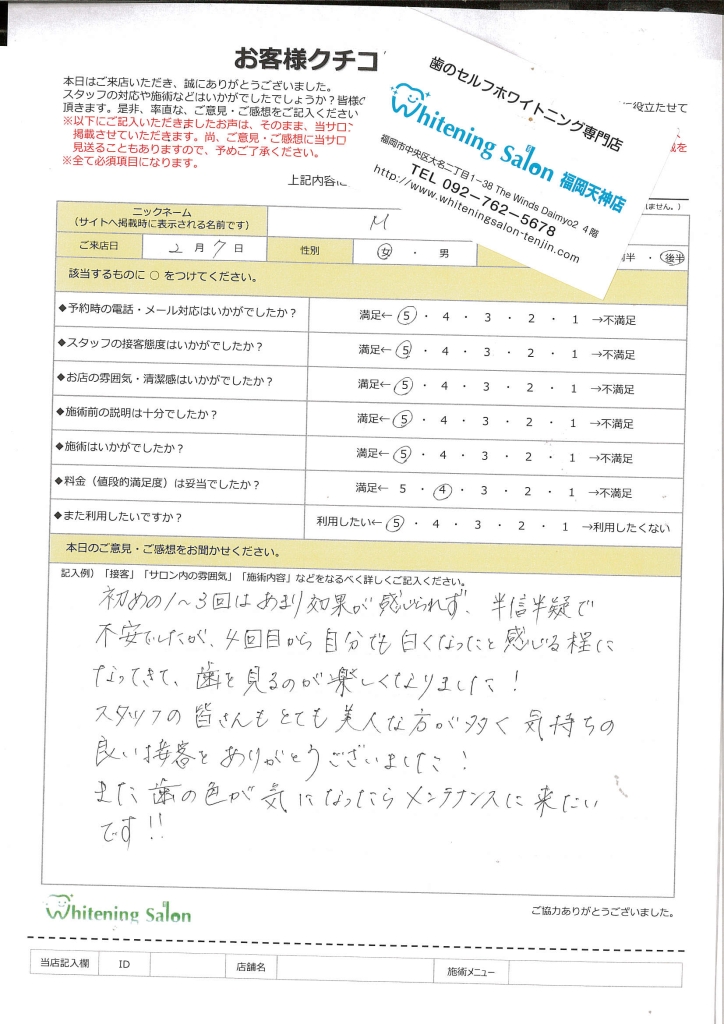 お客様クチコ
本日はご来店いただき、誠にありがとうございました。
スタッフの対応や施術などはいかがでしたでしょうか?皆様の
に役立たせて
頂きます。是非、率直な、ご意見・ご感想をご記入ください
※以下にご記入いただきましたお声は、そのまま、当サロン
掲載させていただきます。尚、ご意見・ご感想に当サロ
を
見送ることもありますので、予めご了承ください。
※全て必須項目になります。
上記内容に
れません。)
歯のセルフホワイトニング専門店
Whitening Salon 福岡天神店
福岡市中央区大名二丁目1-38 The Winds Daimyo2 4階
TEL 092-762-5678
http://www.whiteningsalon-tenjin.com
ニックネーム
(サイトへ掲載時に表示される名前です)
M
ご来店日 2月7日 性別 女 ・ 男 前半 ・ 後半
該当するものに ○ をつけてください。
◆予約時の電話・メール対応はいかがでしたか? 満足← 5 ・ 4 ・ 3 ・ 2 ・ 1 →不満足
◆スタッフの接客態度はいかがでしたか? 満足← 5 ・ 4 ・ 3 ・ 2 ・ 1 →不満足
◆お店の雰囲気・清潔感はいかがでしたか? 満足← 5 ・ 4 ・ 3 ・ 2 ・ 1 →不満足
◆施術前の説明は十分でしたか? 満足← 5 ・ 4 ・ 3 ・ 2 ・ 1 →不満足
◆施術はいかがでしたか? 満足← 5 ・ 4 ・ 3 ・ 2 ・ 1 →不満足
◆料金(値段的満足度)は妥当でしたか? 満足← 5 ・ 4 ・ 3 ・ 2 ・ 1 →不満足
◆また利用したいですか? 利用したい← 5 ・ 4 ・ 3 ・ 2 ・ 1 →利用したくない
本日のご意見・ご感想をお聞かせください。
記入例)「接客」「サロン内の雰囲気」「施術内容」などをなるべく詳しくご記入ください。
初めの1~3回はあまり効果が感じられず、半信半疑で
不安でしたが、4回目から自分でも白くなったと感じる程に
なってきて、歯を見るのが楽しくなりました!
スタッフの皆さんもとても美人な方が多く気持ちの
良い接客をありがとうございました!
また歯の色が気になったらメンテナンスに来たい
です!!
Whitening Salon
ご協力ありがとうございました。
当店記入欄 ID 店舗名 施術メニュー